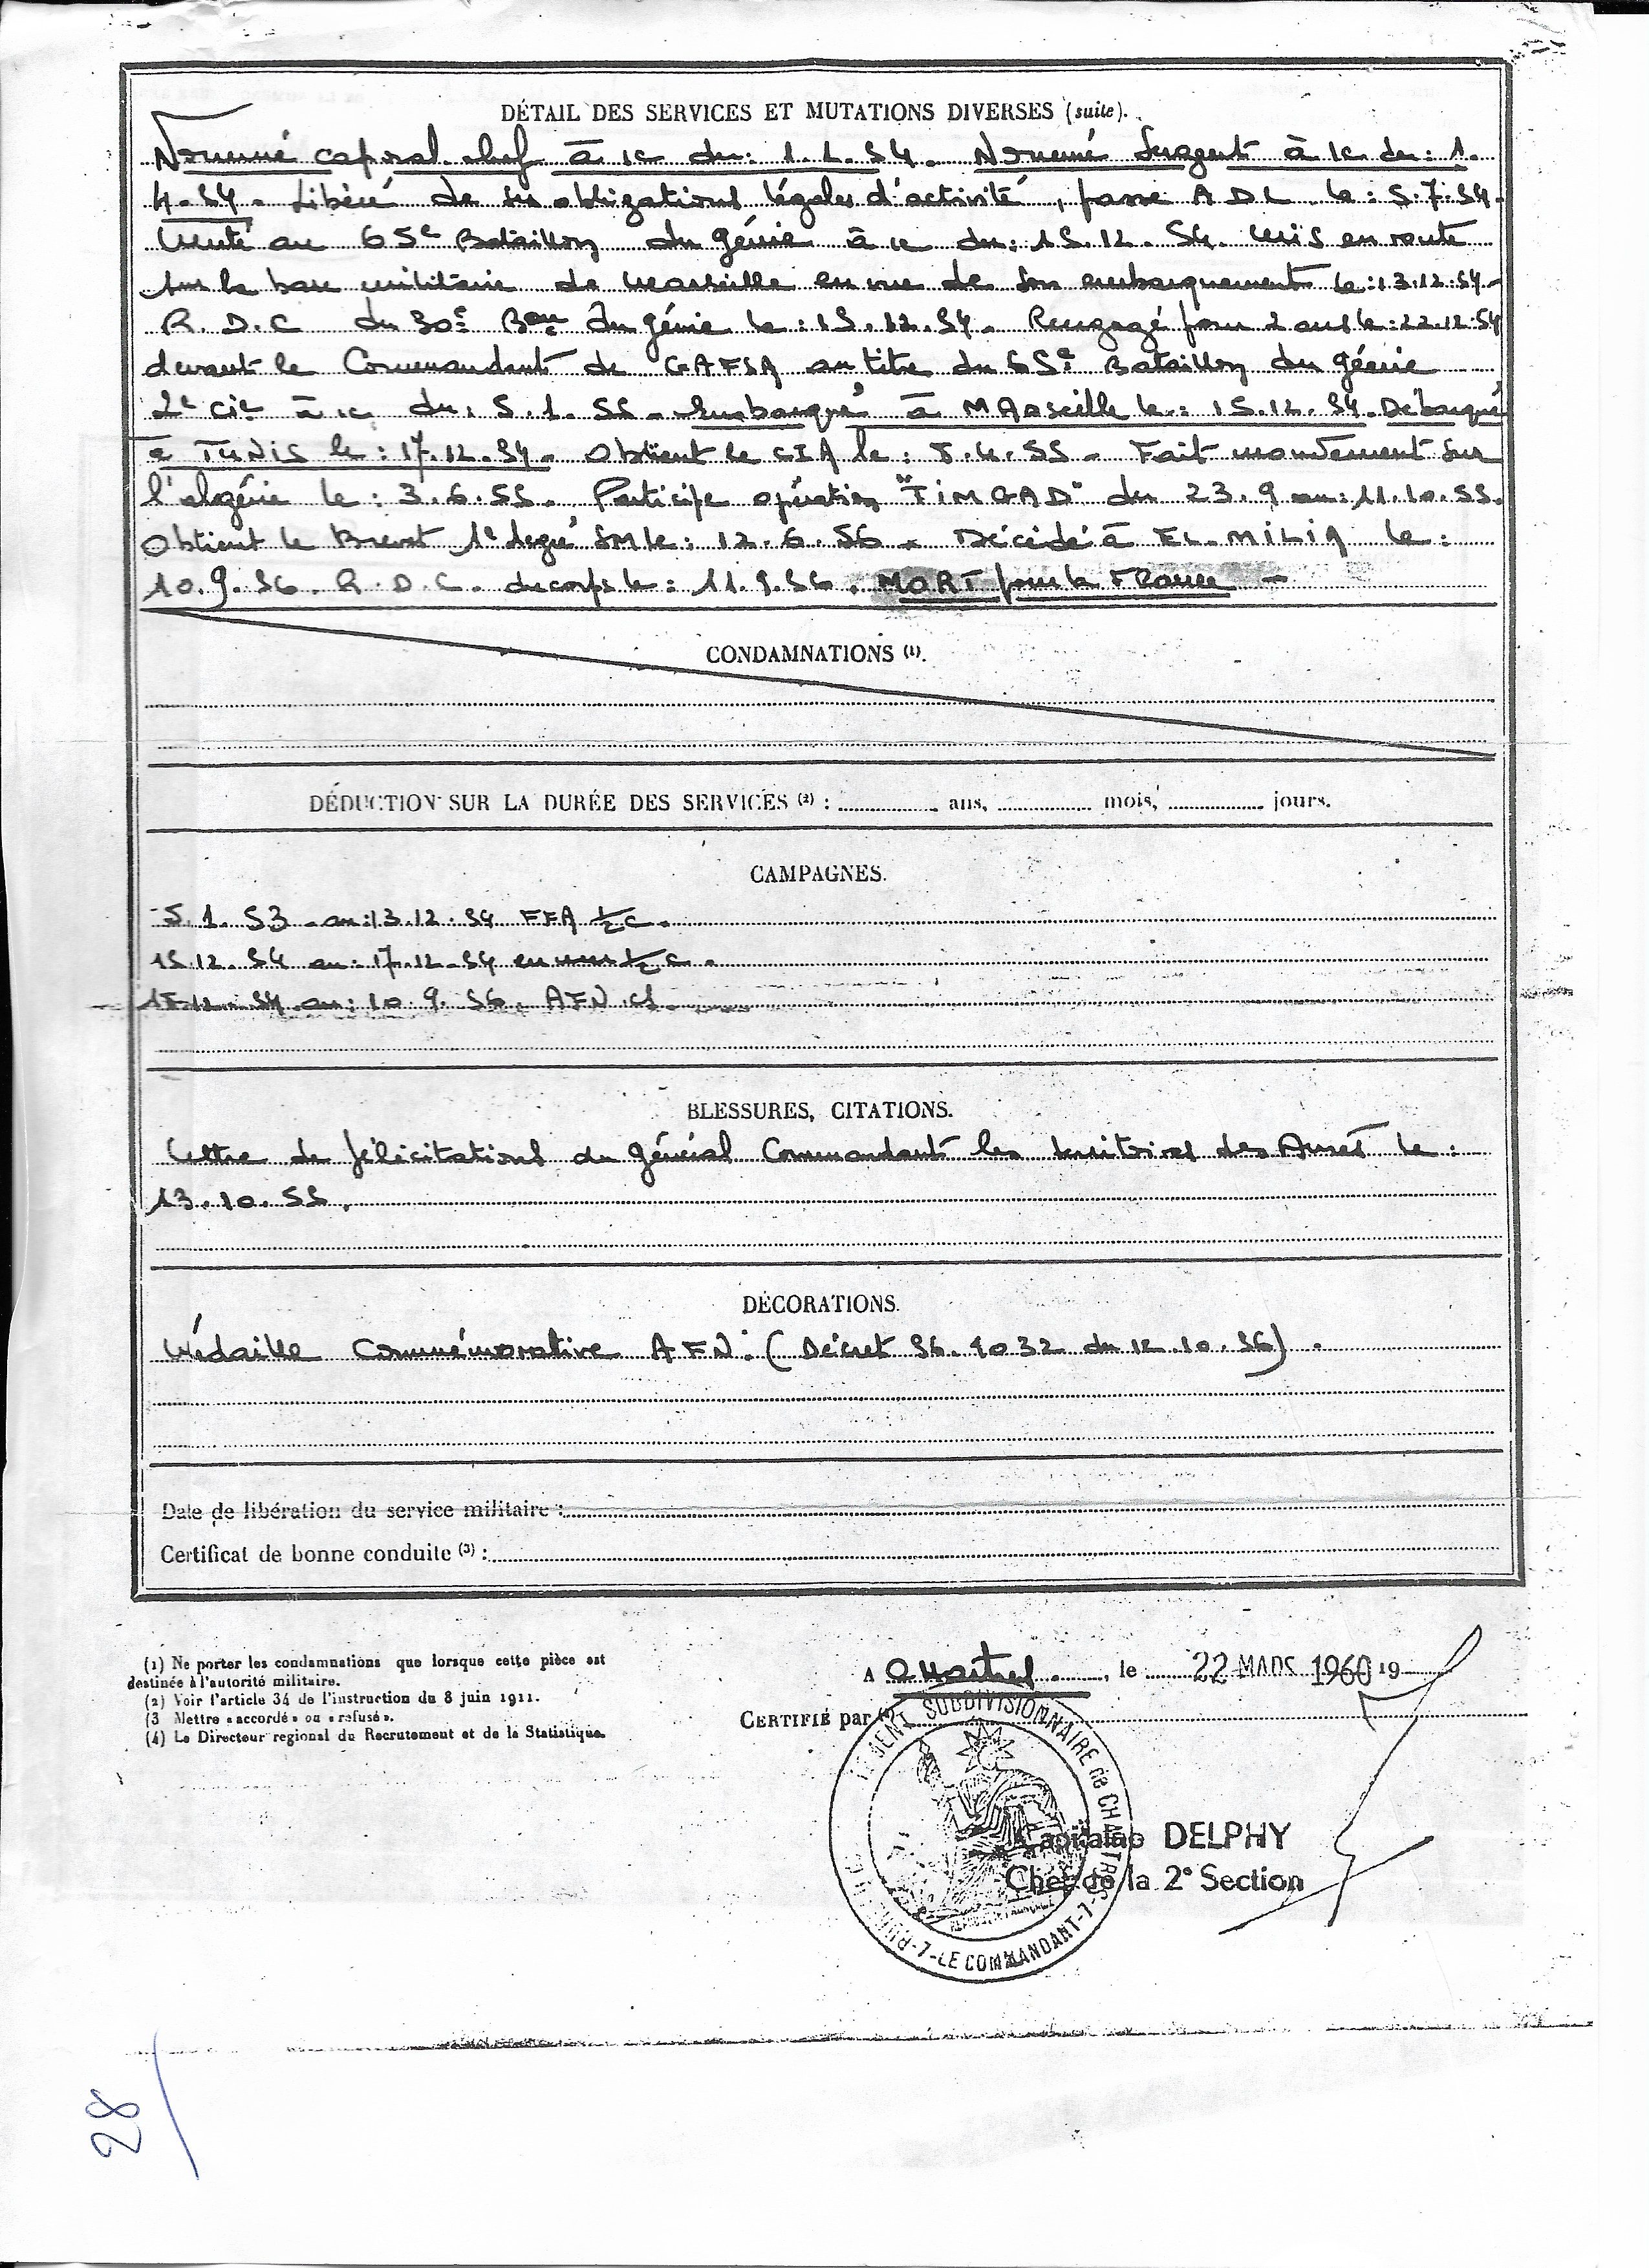 DÉTAIL DES SERVICES ET MUTATIONS DIVERSES (suite).
Nommé caporal chef à /c du : 1.1.54. Nommé Sergent à /c du : 1.
4.54. Libéré de ses obligations légales d'activité, passe A D L le : 5.7.54.
Muté au 65e Bataillon du génie à /c du : 15.12.54. Mis en route
sur la base militaire de Marseille en vue de son embarquement le : 13.12.54.
R.D.C du 30e Bon du génie le : 15.12.54. Rengagé pour 2 ans le : 22.12.54
devant le Commandant de GAFSA au titre du 65e Bataillon du génie
2e cie à /c du : 5.1.55. Embarqué à MArseille le : 15.12.54. Débarqué
à TUNIS le : 17.12.54. Obtient le CIA le : 5.4.55. Fait mouvement sur
l'algérie le : 3.6.55. Participe opération "TIMGAD" du 23.9 au : 11.10.55.
Obtient le Brevet 1e degré SM le : 12.6.56. Décédé à EL-MILIA le :
10.9.56. R.D.C. du corps le : 11.9.56. MORT pour la FRance –
CONDAMNATIONS (1).
DÉDUCTION SUR LA DURÉE DES SERVICES (2) : ans, mois, jours.
CAMPAGNES.
5.1.53 au : 13.12.54 FFA ½ c.
15.12.54 au : 17.12.54 en mer ½ c.
17.12.54 au : 10.9.56. AFN
BLESSURES, CITATIONS.
Lettre de félicitations du général Commandant les territoires des Aurès le :
13.10.55.
DÉCORATIONS.
Médaille Commémorative AFN. (Décret 56.1032 du 12.10.56).
Date de libération du service militaire :
Certificat de bonne conduite (3) :
(1) Ne porter les condamnations que lorsque cette pièce est
destinée à l'autorité militaire.
(2) Voir l'article 34 de l'instruction du 8 juin 1911.
(3 Mettre « accordé » ou « refusé ».
(4) Le Directeur regional du Recrutement et de la Statistique.
A , le 22 MARS 1960 19
CERTIFIÉ par
SUBDIVISIONNAIRE de CHARTRES
-7-LE COMMANDANT-7-
Capitaine DELPHY
Chef de la 2e Section
28